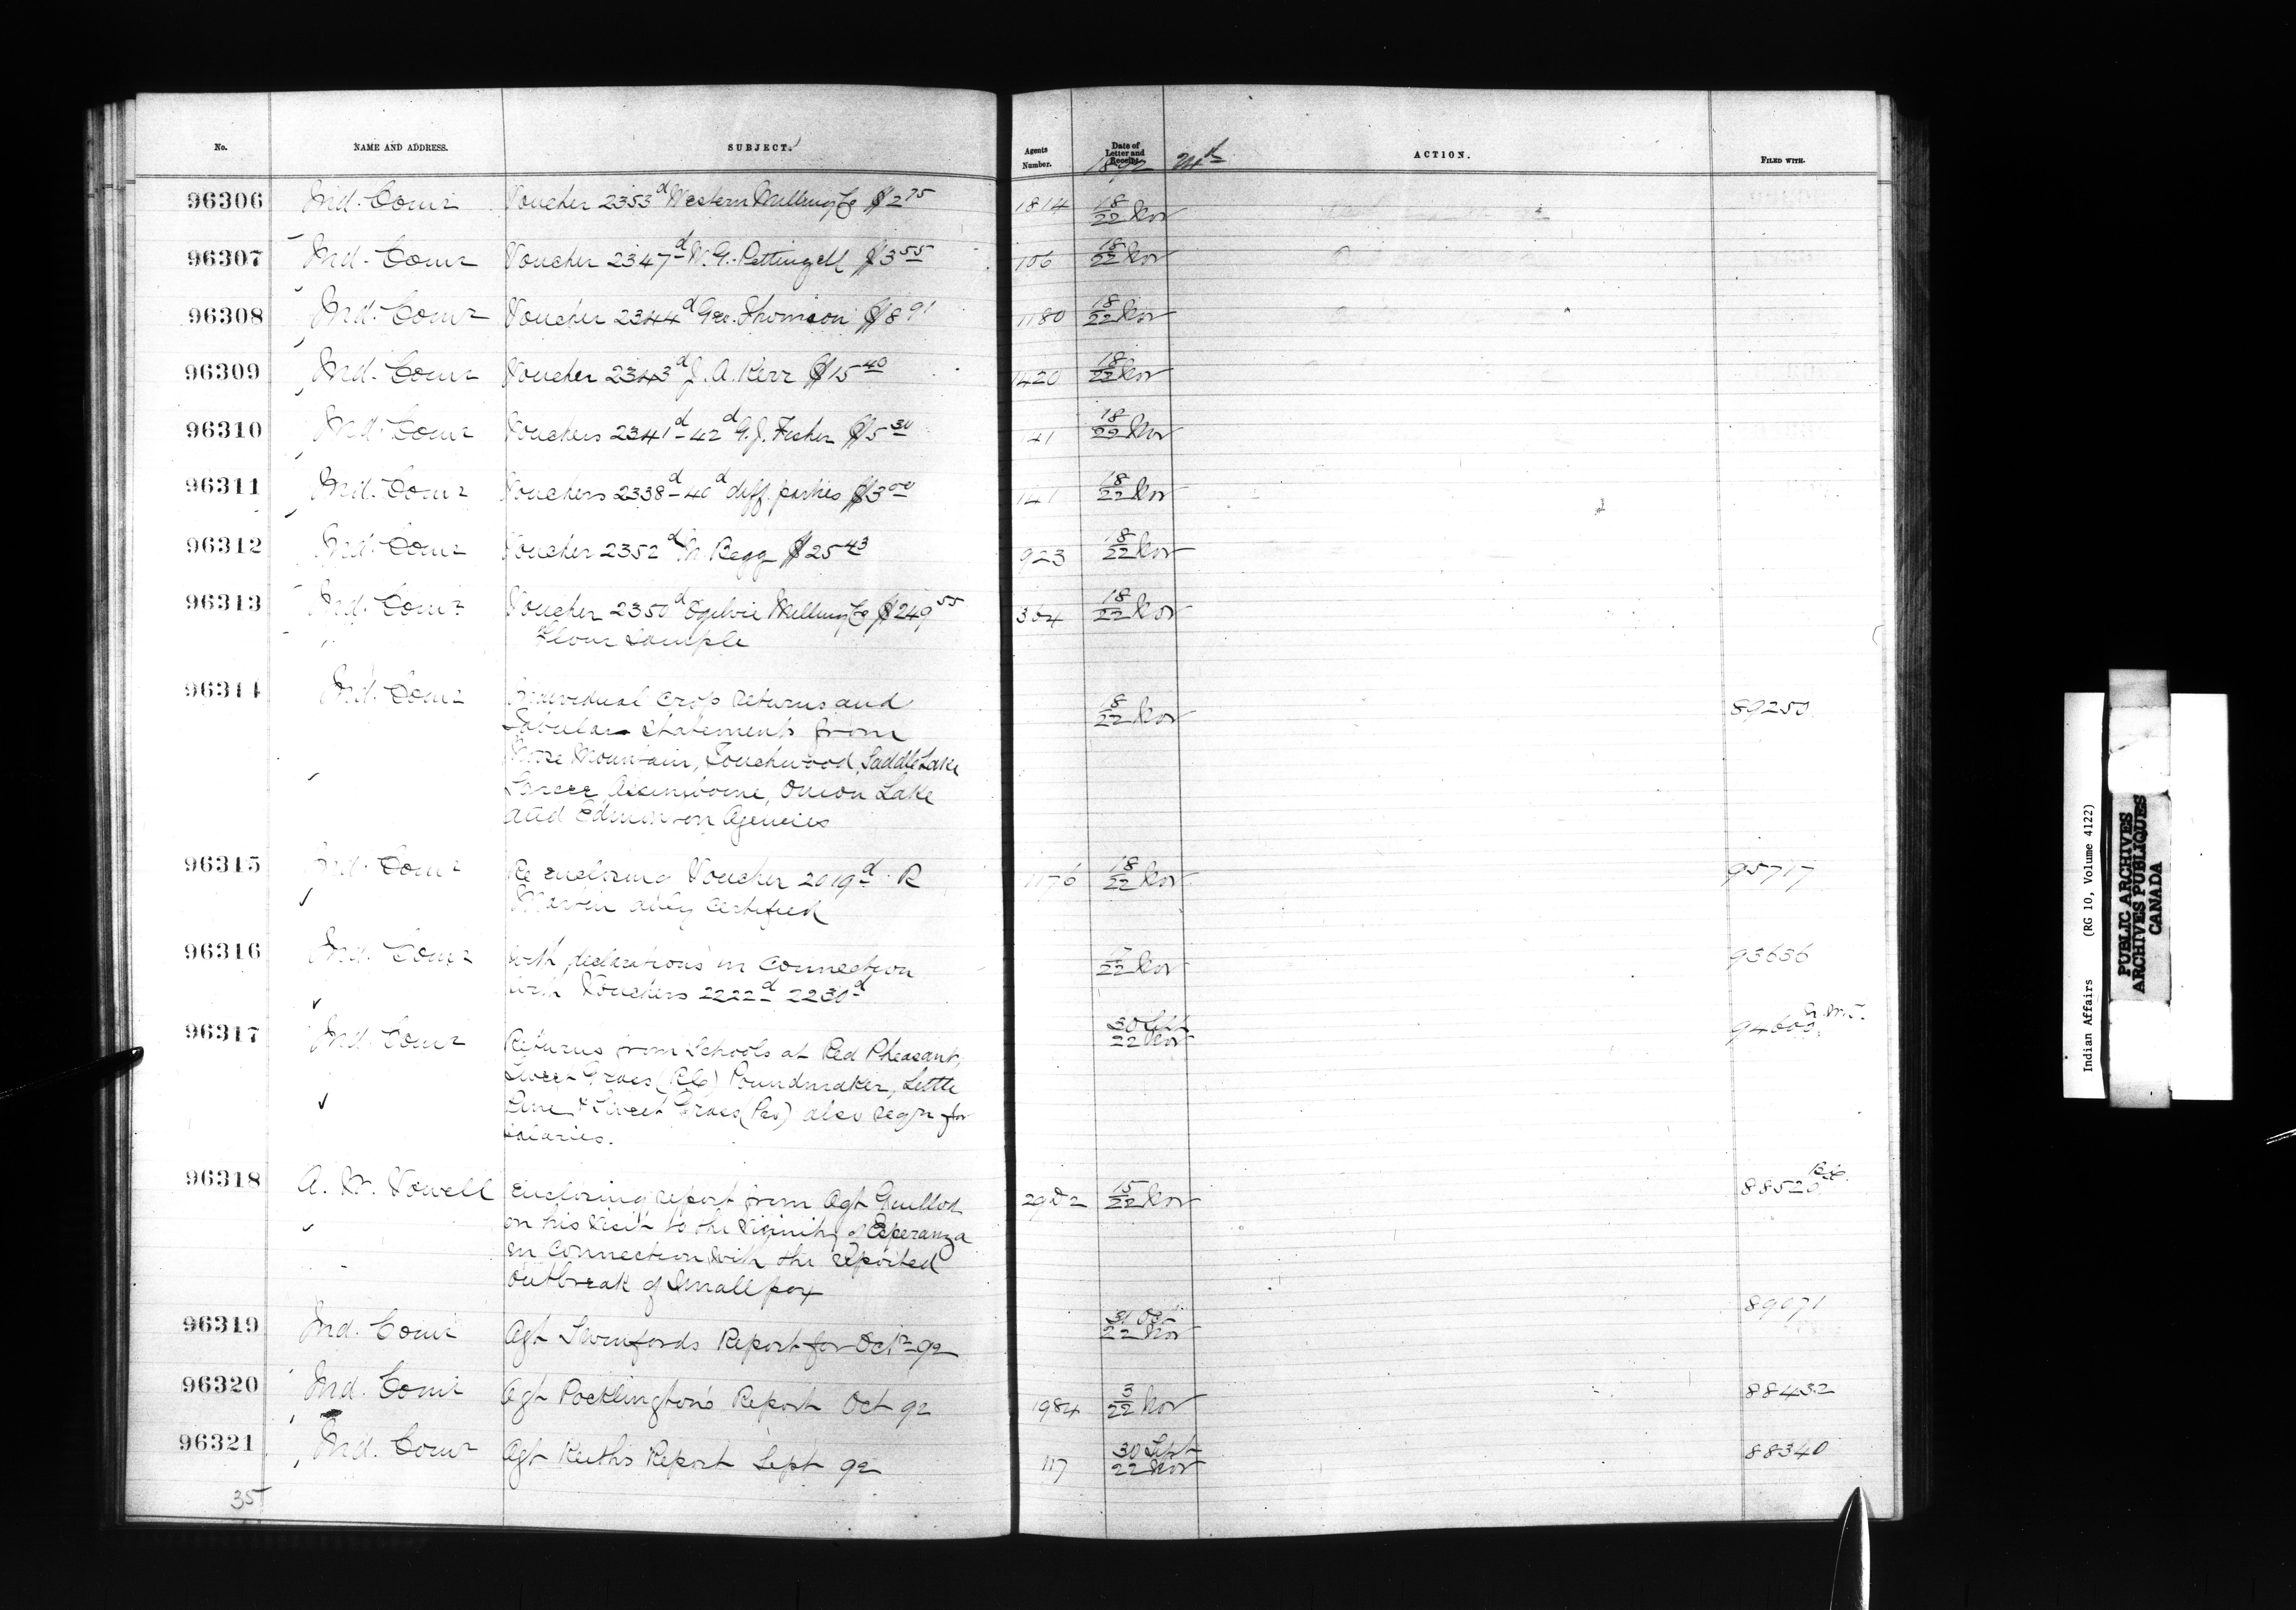 No. NAME AND ADDRESS. SUBJECT. Agents Number. Date of Letter and Receipt. 1892 24th ACTION. FILED WITH.
96306 Ind. Comr Voucher 2353d Western Milling Co $2 75 1814 18/22 Nov
96307 Ind. Comr Voucher 2347d W. G. Pettingell $3 55 106 18/22 Nov
96308 Ind. Comr Voucher 2344d Geo. Thomson $8 91 1180 18/22 Nov
96309 Ind. Comr Voucher 2343d J. A. Kerr $15 40 1420 18/22 Nov
96310 Ind. Comr Vouchers 2341d - 42d G. J. Fisher $5 30 141 18/22 Nov
96311 Ind. Comr Vouchers 2338d - 40d diff. parties $3 00 141 18/22 Nov
96312 Ind. Comr Voucher 2352d M. Begg $25 43 923 18/22 Nov
96313 Ind. Comr Voucher 2350d Ogilvie Milling Co $249 55 364 18/22 Nov
Flour Sample
96314 Ind. Comr Individual crop returns and 18/22 Nov 89250
Tabular statements from
Moose Mountain, Touchwood, Saddle Lake
Sarcee, Assiniboine, Onion Lake
and Edmonton Agencies
96315 Ind. Comr Re enclosing Voucher 2019d R 1176 18/22 Nov 95717
duly certified
96316 Ind. Comr with declarations in connection 22 Nov 93636
with Vouchers 2222d 2230d
96317 Ind. Comr Returns from Schools at Red Pheasant, 30 Sept/22 Nov 94600
Sweet Grass (RC) Poundmaker, Little
Pine & Sweet Grass (Pro) also reqn for
salaries.
96318 A. W. Vowell Enclosing report from Agt Guillod 29 D 2 15/22 Nov 88520 B.C.
on his visit to the vicinity of Esperanza
in connection with the reported
outbreak of Small pox
96319 Ind. Comr Agt Swinfords Report for Octr 92 31 Oct/22 Nov 89071
96320 Ind. Comr Agt Pocklington's Report Oct 92 1984 3/22 Nov 88432
96321 Ind. Comr Agt Keith's Report Sept 92 117 30 Sept/22 Nov 88340
35
Indian Affairs (RG 10, Volume 4122)
PUBLIC ARCHIVES
ARCHIVES PUBLIQUES
CANADA